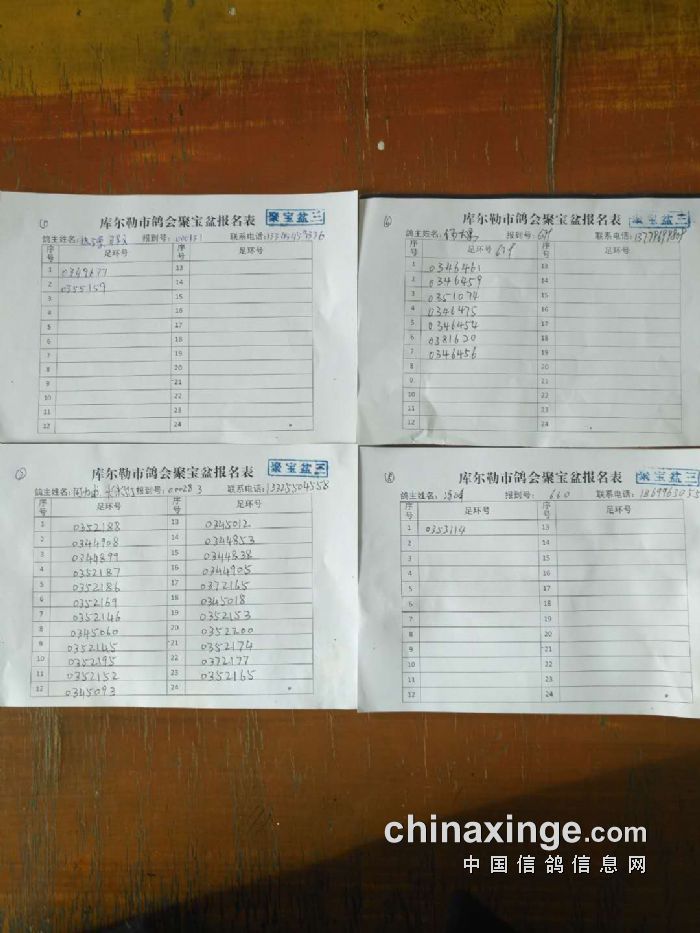 库尔勒市鸽会聚宝盆报名表 聚宝盆三
鸽主姓名: 报到号: 联系电话:
序号 足环号 序号 足环号
1 0349677 13
2 0355159 14
3 15
4 16
5 17
6 18
7 19
8 20
9 21
10 22
11 23
12 24
库尔勒市鸽会聚宝盆报名表 聚宝盆三
鸽主姓名: 报到号: 679 联系电话:
序号 足环号 679 序号 足环号
1 0346461 13
2 0346459 14
3 0351074 15
4 0346475 16
5 0346454 17
6 0381620 18
7 0346456 19
8 20
9 21
10 22
11 23
12 24
库尔勒市鸽会聚宝盆报名表 聚宝盆三
鸽主姓名: 报到号: 000283 联系电话: 13325504558
序号 足环号 序号 足环号
1 0352188 13 0345012
2 0344908 14 0344853
3 0344899 15 0344838
4 0352187 16 0344905
5 0352186 17 0372165
6 0352169 18 0345018
7 0352146 19 0352153
8 0345060 20 0352200
9 0352145 21 0352174
10 0352195 22 0372177
11 0352152 23 0352165
12 0345093 24
库尔勒市鸽会聚宝盆报名表 聚宝盆三
鸽主姓名: 报到号: 660 联系电话:
序号 足环号 序号 足环号
1 0353114 13
2 14
3 15
4 16
5 17
6 18
7 19
8 20
9 21
10 22
11 23
12 24
chinaxinge.com
中国信鸽信息网